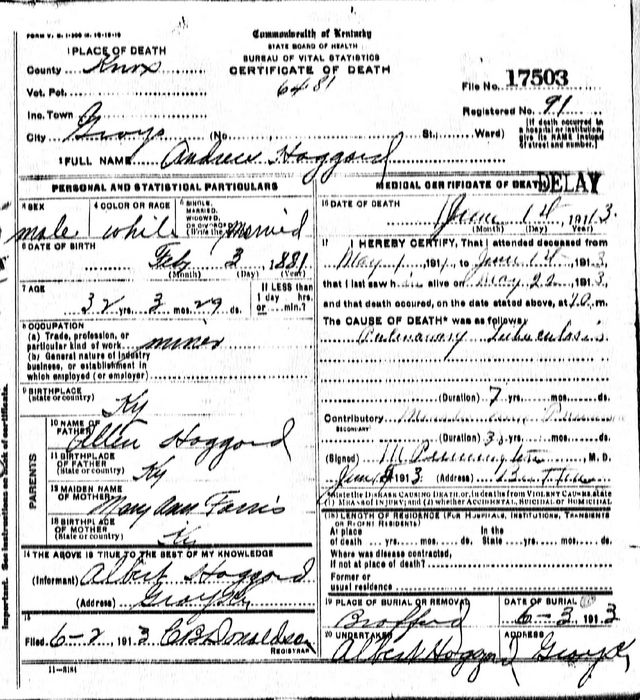 FORM V. S. 1-
Commonwealth of Kentucky
STATE BOARD OF HEALTH
BUREAU OF VITAL STATISTICS
CERTIFICATE OF DEATH
1 PLACE OF DEATH
County Knox
6481
File No. 17503
Vot. Pct.
Registered No. 91
Inc. Town
City Grays (No. St.; Ward)
[If death occurred in a hospital or institution, give its NAME instead of street and number.]
2 FULL NAME Andrew Hoggard
PERSONAL AND STATISTICAL PARTICULARS
3 SEX male
4 COLOR OR RACE white
5 SINGLE, MARRIED, WIDOWED, OR DIVORCED (Write the word) Married
6 DATE OF BIRTH
Feb 3 1881
(Month) (Day) (Year)
7 AGE
32 yrs. 3 mos. 29 ds.
If LESS than 1 day, hrs. or min.?
8 OCCUPATION
(a) Trade, profession, or particular kind of work miner
(b) General nature of industry business, or establishment in which employed (or employer)
9 BIRTHPLACE
(State or country) Ky
PARENTS
10 NAME OF FATHER Allen Hoggard
11 BIRTHPLACE OF FATHER
(State or country) Ky
12 MAIDEN NAME OF MOTHER Mary Ann Farris
13 BIRTHPLACE OF MOTHER
(State or country) Ky
14 THE ABOVE IS TRUE TO THE BEST OF MY KNOWLEDGE
(Informant) Albert Hoggard
(Address) Grays Ky
15
Filed 6-2, 1913 C B Donaldson
REGISTRAR
11-8184
MEDICAL CERTIFICATE OF DEATH
DELAY
16 DATE OF DEATH
June 1st 1913
(Month) (Day) (Year)
17 I HEREBY CERTIFY, That I attended deceased from
May 1, 191 to June 1st, 1913,
that I last saw him alive on May 22, 1913,
and that death occured, on the date stated above, at m.
The CAUSE OF DEATH* was as follows:
Pulmonary Tuberculosis
(Duration) 7 yrs. mos. ds.
Contributory
SECONDARY
(Duration) 3 yrs. mos. ds.
(Signed) M Pennington, M. D.
June, 1913 (Address)
*State the DISEASE CAUSING DEATH, or, in deaths from VIOLENT CAUSES, state (1) MEANS OF INJURY; and (2) whether ACCIDENTAL, SUICIDAL or HOMICIDAL.
18 LENGTH OF RESIDENCE (FOR HOSPITALS, INSTITUTIONS, TRANSIENTS OR RECENT RESIDENTS)
At place of death yrs. mos. ds. In the State yrs. mos. ds.
Where was disease contracted, if not at place of death?
Former or usual residence
19 PLACE OF BURIAL OR REMOVAL
DATE OF BURIAL
6-3, 1913
20 UNDERTAKER
ADDRESS
Albert Hoggard Grays Ky
Important. See instructions on back of certificate.